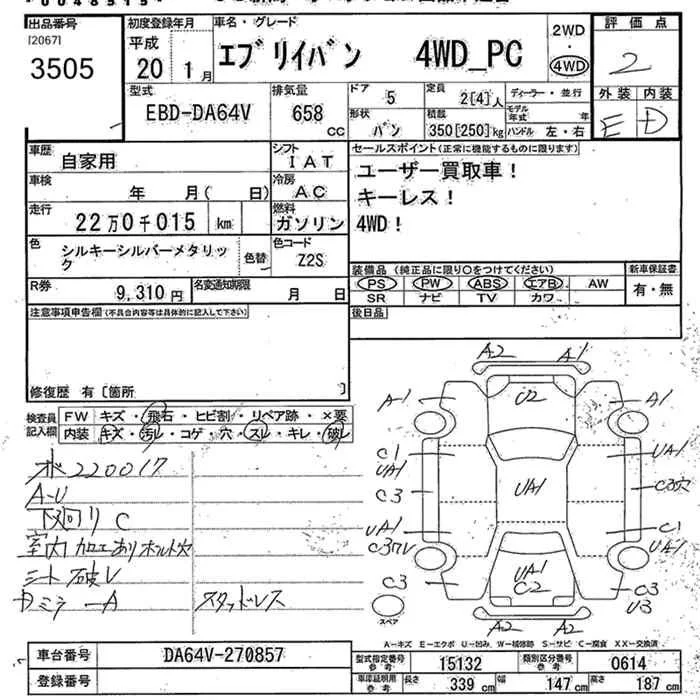 0048515
出品番号
[2067]
3505
初度登録年月
平成
20 1月
車名・グレード
エブリイバン 4WD_PC
2WD
・
4WD
評価点
2
外装 内装
E D
型式
EBD-DA64V
排気量
658 CC
ドア
5
定員
2[4]人
ディーラー・並行
形状
バン
積載
350[250]kg
モデル年式 年
ハンドル 左・右
車歴
自家用
シフト
IAT
車検
年 月( 日)
冷房
AC
走行
22万0千015 km
燃料
ガソリン
色
シルキーシルバーメタリック
色替
色コード
Z2S
R券
9,310円
名変通知期限
月 日
セールスポイント(正常に機能するものに限ります)
ユーザー買取車!
キーレス!
4WD!
装備品(純正品に限り○をつけてください)
新車保証書
PS PW ABS エアB AW
有・無
SR ナビ TV カワ
後日品
注意事項申告欄(不具合内容等は具体的に記入して下さい)
修復歴 有[箇所 ]
検査員記入欄
FW キズ・飛石・ヒビ割・リペア跡・×要
内装 キズ・汚レ・コゲ・穴・スレ・キレ・破レ
220017
A-U
下廻り C
室内 加工あり ボルト穴
シート破レ
カミラーA
スタッドレス
A2 A1
A-1 U2 A1
C1 UA1
UA1 C3穴
C3 UA1
UA1 C1
C3ワレ UA1
C3 UA1 C3
C2 U3
スペア
A2 A2
A-キズ E-エクボ U-凹み W-補修跡 S-サビ C-腐食 XX-交換済
車台番号
DA64V-270857
登録番号
型式指定番号 参考
15132
類別区分番号 参考
0614
車庫証明用 参考
長さ 339 cm 幅 147 cm 高さ 187 cm